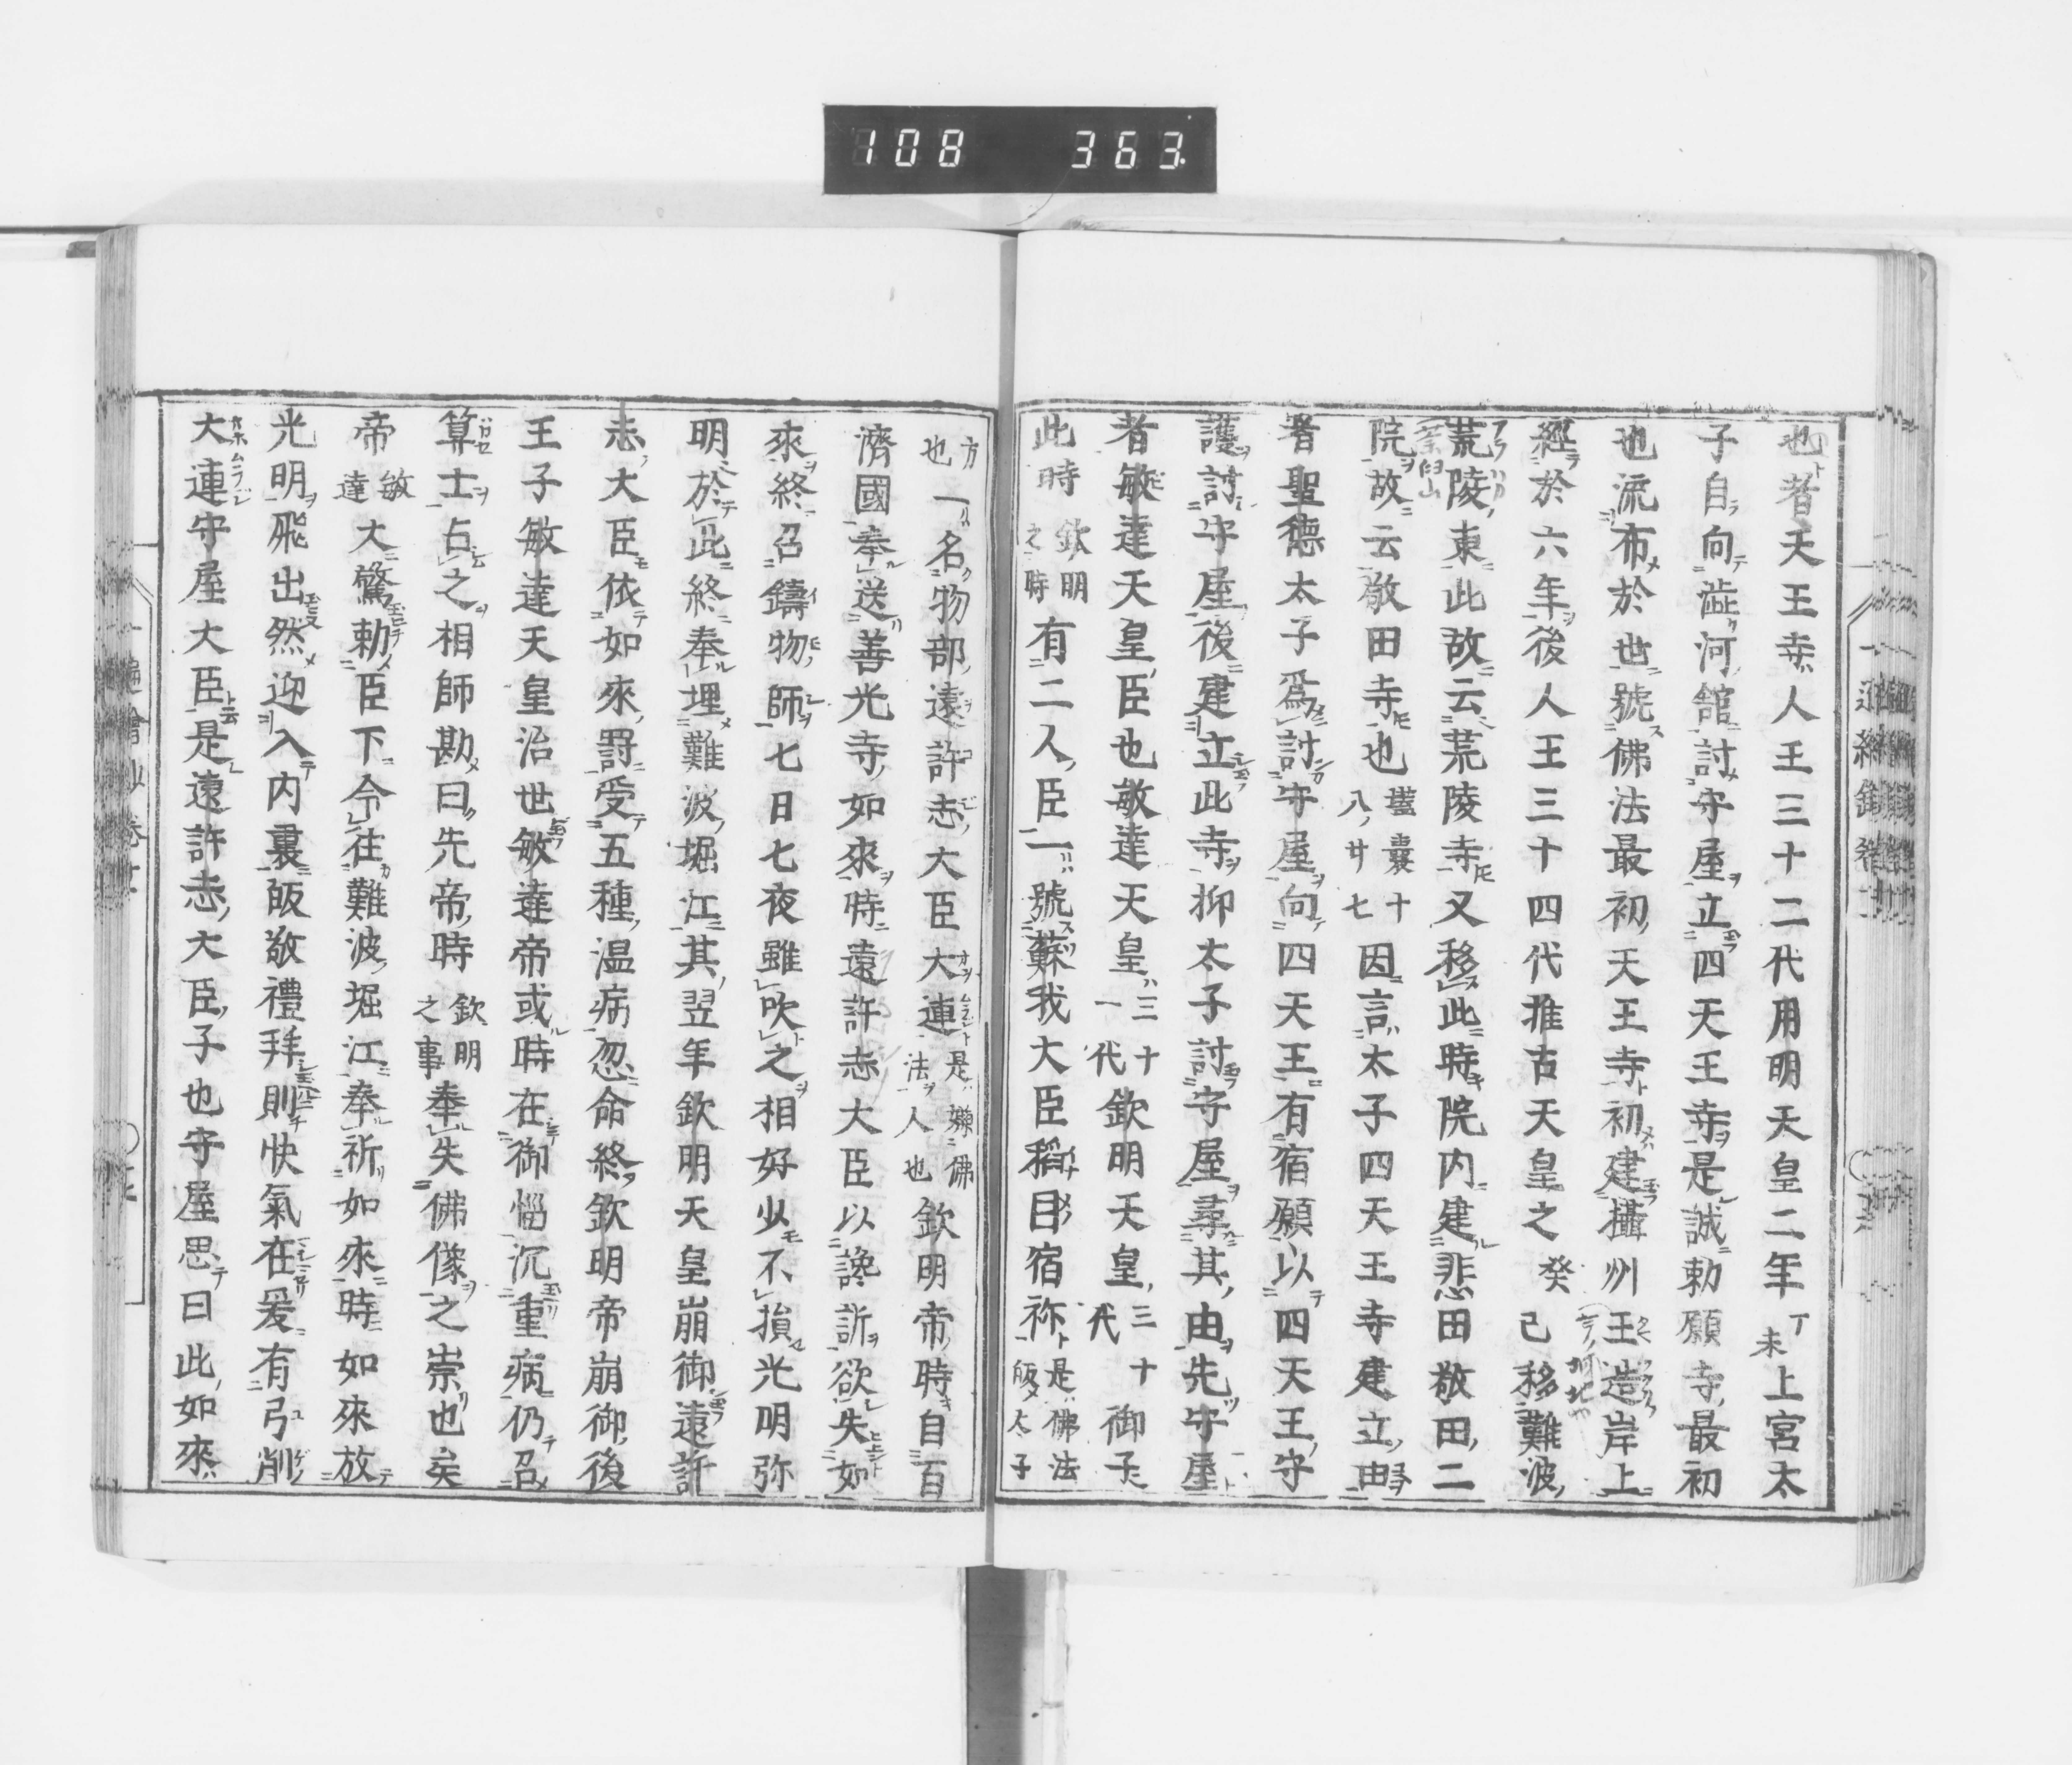 108 363
也者天王寺人王三十二代用明天皇二年丁未上宮太
子自向澁河舘討守屋立四天王寺是誠勅願寺最初
也流布於世號佛法最初天王寺初建攝州玉造岸上
經於六年後人王三十四代推古天皇之癸己移難波
荒陵東此故云荒陵寺又移此時院内建悲田敬田二
院故云敬田寺也壒囊十八廿七因言太子四天王寺建立由
者聖德太子爲討守屋向四天王有宿願以四天王守
護討守屋後建立此寺抑太子討守屋尋其由先守屋
者敏達天皇臣也敏達天皇三十一代欽明天皇三十代御子
此時欽明之時有二人臣一號蘇我大臣稻目宿祢是佛法皈太子
方也一名物部遠許志大臣大連是嫌佛法人也欽明帝時自百
濟國奉送善光寺如來時遠許志大臣以讒訴欲失如
來終召鑄物師七日七夜雖吹之相好少不損光明弥
明於此終奉埋難波堀江其翌年欽明天皇崩御遠許
志大臣依如來罰受五種温病忽命終欽明帝崩御後
王子敏達天皇治世敏達帝或時在御惱沉重病仍召
算士占之相師勘曰先帝時欽明之事奉失佛像之崇也矣
帝敏達大驚勅臣下令往難波堀江奉祈如來時如來放
光明飛出然迎入内裏皈敬禮拜則快氣在爰有弓削
大連守屋大臣是遠許志大臣子也守屋思曰此如來